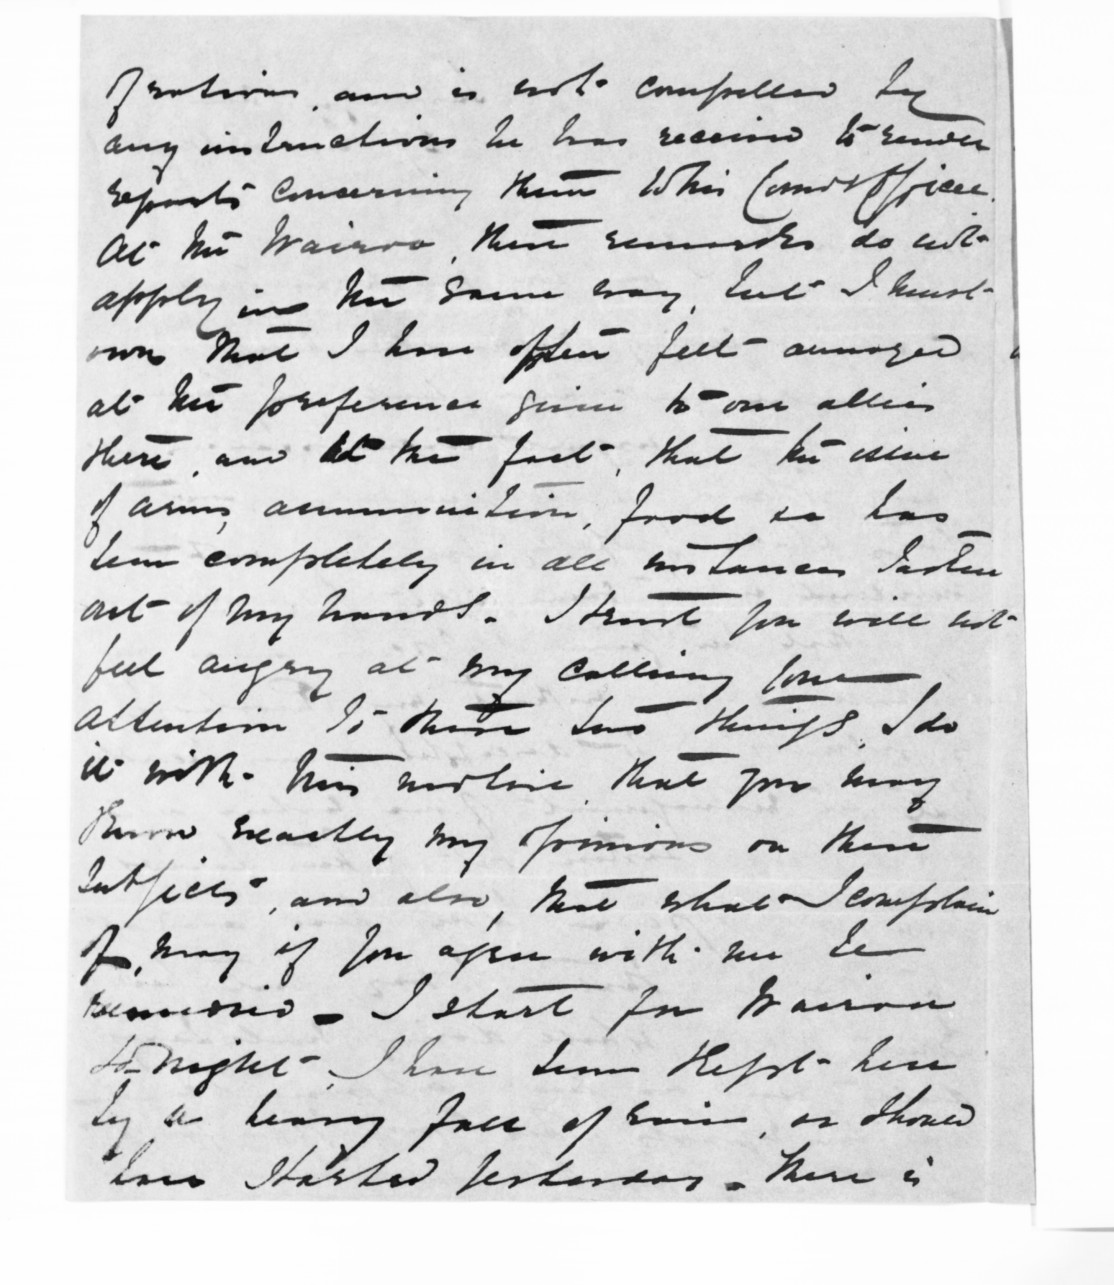 of rations, and is not compelled by
any instructions he has received to render
reports concerning them to his Comdg Officer.
At the Wairoa, these remarks do not
apply in the same way, but I must
own that I have often felt annoyed
at the preference given to our allies
there, and at the fact, that the issue
of arms, ammunition, food &c has
been completely in all instances taken
out of my hands. I trust you will not
feel angry at my calling your
attention to these two things, I do
it with this motive, that you may
know exactly my opinions on these
subjects, and also, that what I complain
of, may if you agree with me be
remedied. I start for Wairoa
to-night, I have been kept here
by a heavy fall of rain, or should
have started yesterday. There is